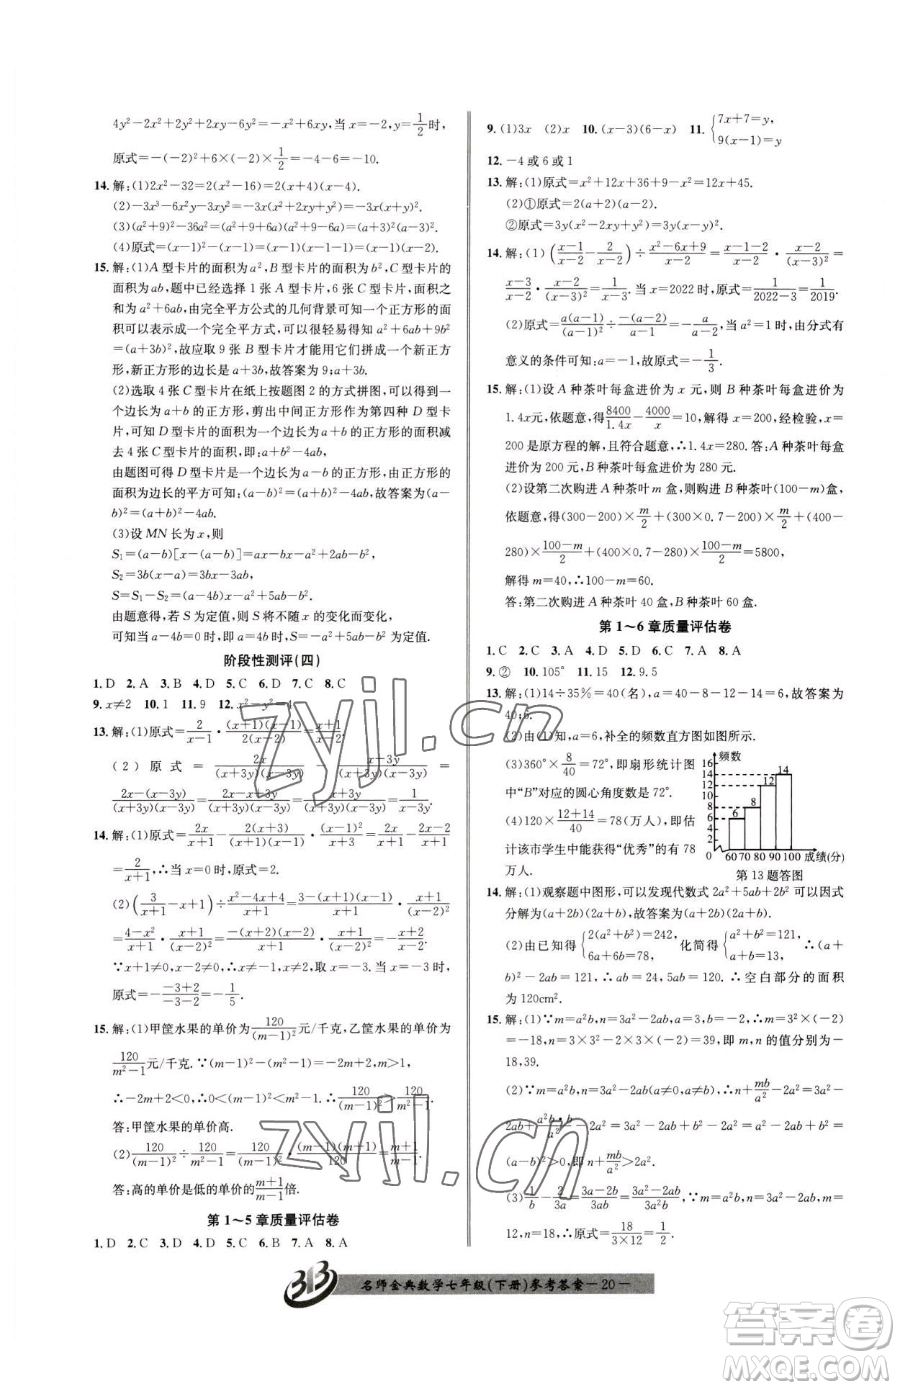 4y²-2x²+2y²+2xy-6y²+4xy=-x²+6xy,当 x=-2,y=1/2时,
原式=-(-2)²+6×(-2)×1/2=-4-6=-10.
14. 解:(1)2x²-32=2(x²-16)=2(x+4)(x-4).
(2)-3x³-6x²y-3xy²=-3x(x²+2xy+y²)=-3x(x+y)².
(3)(a²+9)²-36a²=(a²+9+6a)(a²+9-6a)=(a+3)²(a-3)².
(4)原式=(x-1)²-(x-1)=(x-1)(x-1-1)=(x-1)(x-2).
15. 解:(1)A 型卡片的面积为 a²,B 型卡片的面积为 b²,C 型卡片的
面积为 ab,题中已经选择 1 张 A 型卡片,6 张 C 型卡片,面积之
和为 a²+6ab,由完全平方公式的几何背景可知一个正方形的
面积可以表示成一个完全平方式,可以很轻易得知 a²+6ab+9b²
=(a+3b)²,故应取 9 张 B 型卡片才能用它们拼成一个新正方
形,新正方形的边长是 a+3b,故答案为 9;a+3b.
(2)选取 4 张 C 型卡片在纸上按题图 2 的方式拼图,可得到一个
边长为 a+b 的正方形,剪出中间正方形作为第四种 D 型卡
片,可知此 D 型卡片的面积为一个边长为 a+b 的正方形面积减
去 4 张 C 型卡片的面积,即:(a+b)²-4ab.
由题图可得 D 型卡片是一个边长为 a-b 的正方形,由正方形的
面积为边长的平方可知:(a-b)²=(a+b)²-4ab,故答案为(a-
b)²=(a+b)²-4ab.
(3)设 MN 长为 x,则
S₁=(a-b)[x-(a-b)]=ax-bx-a²+2ab-b²,
S₂=3b(x-a)=3bx-3ab,
S=S₁-S₂=(a-4b)x-a²+5ab-b²,
由题意得,若 S 为定值,则 S 将不随 x 的变化而变化,
可知当 a-4b=0 时,即 a=4b 时,S=-a²+5ab-b² 为定值.
阶段性测评(四)
1. D 2. A 3. B 4. D 5. C 6. D 7. D 8. C
9. x≠2 10. 1 11. 9 12. x²-y²=4
13. 解:(1)原式=2/(x-1)·(x+1)(x-1)/2(x-2)=(x+1)/(x-2).
(2)原式=2x/(x+3y)(x-3y)-(x+3y)/(x+3y)(x-3y)=
(2x-(x+3y))/(x+3y)(x-3y)=(x-3y)/(x+3y)(x-3y)=1/(x+3y).
14. 解:(1)原式=2x/(x+1)-2(x+3)/(x+1)(x-1)·(x-1)²/(x+3)=2x/(x+1)-(2x-2)/(x+1)
=2/(x+1),∴当 x=0 时,原式=2.
(2)(3/(x+1)-x+1)÷(x²-4x+4)/(x+1)=(3-(x+1)(x-1))/(x+1)·(x+1)/(x-2)²
=(4-x²)/(x+1)·(x+1)/(x-2)²=-(x+2)(x-2)/(x+1)·(x+1)/(x-2)²=-(x+2)/(x-2).
∵x+1≠0 且 x-2≠0,∴x≠-1 且 x≠2,取 x=-3.当 x=-3 时,
原式=-(-3+2)/(-3-2)=-1/5.
15. 解:(1)甲筐水果的单价为120/(m-1)²元/千克,乙筐水果的单价为
120/(m²-1)元/千克.∵(m-1)²-(m²-1)=-2m+2,m>1,
∴-2m+2<0,∴0<(m-1)²<m²-1,∴120/(m-1)²>120/(m²-1).
答:甲筐水果的单价高.
(2)120/(m-1)²÷120/(m²-1)=120/(m-1)²·(m-1)(m+1)/120=(m+1)/(m-1).
答:高的单价是低的单价的(m+1)/(m-1)倍.
第 1～5 章质量评估卷
1. D 2. C 3. C 4. B 5. D 6. B 7. A 8. A
9. (1)3x (2)x 10. (x-3)(6-x) 11. {7x+7=y, 9(x-1)=y
12. -4 或 6 或 1
13. 解:(1)原式=x²+12x+36+9-x²=12x+45.
(2)①原式=2(a+2)(a-2).
②原式=3y(x²-2xy+y²)=3y(x-y)².
14. 解:(1)((x-1)/(x-2)-2/(x-2))÷(x²-6x+9)/(x-2)=(x-1-2)/(x-2)·(x-2)/(x-3)²=
(x-3)/(x-2)·(x-2)/(x-3)²=1/(x-3).当 x=2022 时,原式=1/(2022-3)=1/2019.
(2)原式=a(a-1)/(a-1)²÷-(a-2)/(a-1)=-a/(a-2),当 a²=1 时,由分式有
意义的条件可知:a=-1,故原式=-1/3.
15. 解:(1)设 A 种茶叶每盒进价为 x 元,则 B 种茶叶每盒进价为
1.4x元,依题意,得8400/1.4x-4000/x=10,解得 x=200,经检验,x=200
是原方程的解,且符合题意,∴1.4x=280. A 种茶叶每盒
进价为 200 元,B 种茶叶每盒进价为 280 元.
(2)设第二次购进 A 种茶叶 m 盒,则 B 种茶叶(100-m)盒,
依题意,得(300-200)×m/2+(300×0.7-200)×m/2+(400-
280)×(100-m)/2+(400×0.7-280)×(100-m)/2=5800,
解得 m=40,∴100-m=60.
答:第二次购进 A 种茶叶 40 盒,B 种茶叶 60 盒.
第 1～6 章质量评估卷
1. C 2. C 3. A 4. D 5. D 6. A 7. A 8. C
9. ② 10. 105° 11. 15 12. 9.5
13. 解:(1)14÷35%=40(名),a=40-8-12-14=6,故答案为
40;6.
(2)由(1)知,a=6,补全的频数直方图如图所示.
(3)360°×8/40=72°,即扇形统计图
中“B”对应的圆心角度数为 72°.
(4)120×(12+14)/40=78(万人),即估
计该市学生中能获得“优秀”的有 78
万人.
频数
16
14
12
10
8
6
4
2
0
6 8 12 14
60 70 80 90 100 成绩(分)
第 13 题答图
14. 解:(1)观察题中图形,可以发现代数式 2a²+5ab+2b² 可以因式
分解为(a+2b)(2a+b),故答案为(a+2b)(2a+b).
(2)由已知得{2(a²+b²)=242, (a+2b)(2a+b)... 化简得{a²+b²=121, ∴(a+
b)²-2ab=121,∴ab=24,5ab=120.∴空白部分的面积
为 120cm².
15. 解:(1)∵m=a²b,n=3a²-2ab,a=3,b=-2,∴m=3²×(-2)
=-18,n=3×3²-2×3×(-2)=39,即 m,n 的值分别为-
18,39.
(2)∵m=a²b,n=3a²-2ab,a≠b,a≠0,∴n+mb/a²-2a²=3a²-
2ab+a²b·b/a²-2a²=a²-2ab+b²=(a-b)²,∵a≠b,∴
(a-b)²>0,∴n+mb/a²>2a².
(3)1/b-2/3a=(3a-2b)/3ab=a(3a-2b)/3a²b=(3a²-2ab)/3a²b=n/3m,∵m=
12,n=18,∴原式=18/(3×12)=1/2.
名师金典数学七年级(下册)参考答案—20—
zyjl.cn
zyjl.cn
答案圈
MXQE.COM